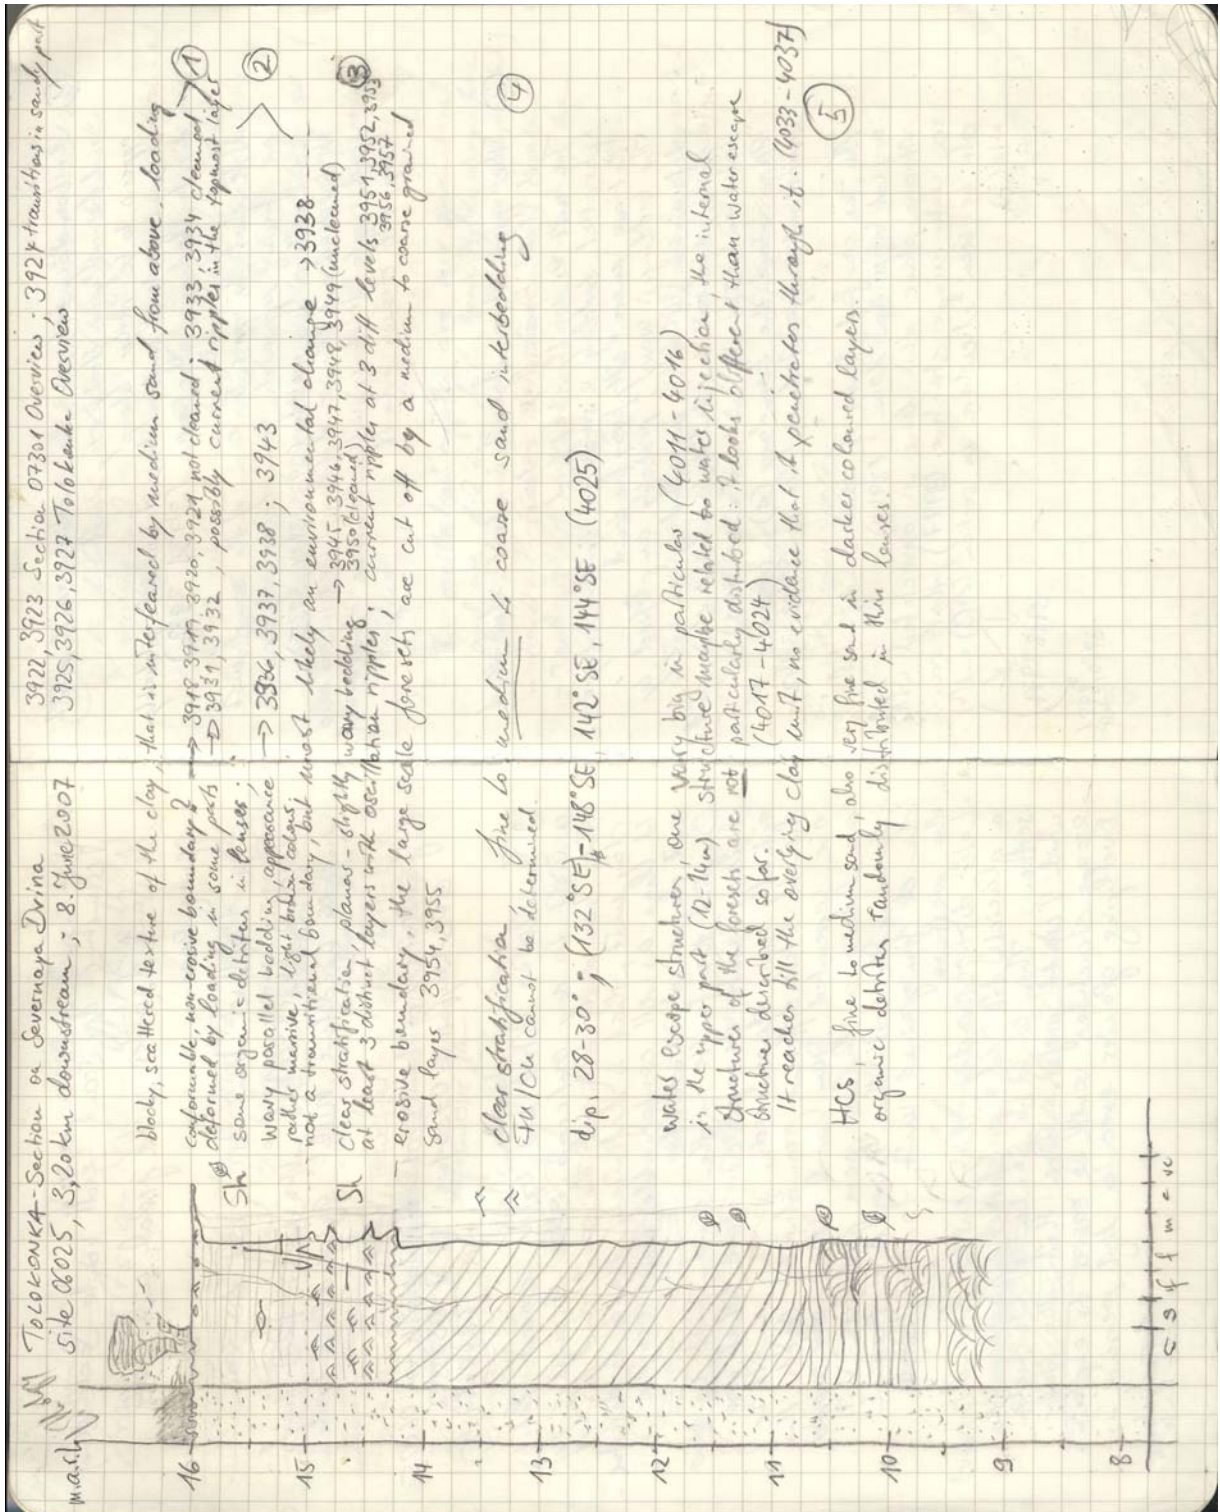 TOLOKONKA-Section on Severnaya Dvina
Site 06025, 3,20km downstream ; 8. June 2007
3922, 3923 Section 07301 Overview ; 3924 transitions in sandy part
3925, 3926, 3927 Tolokonka Overview
m.a.s.l.
blocky, scattered texture of the clay, that is interfeared by medium sand from above, loading
conformable, non-erosive boundary? → 3918, 3919, 3920, 3921 not cleaned ; 3933, 3934 cleaned
deformed by loading in some parts → 3931, 3932 , possibly current ripples in the topmost layer
1
some organic detritus in lenses.
wavy parallel bedding, appearance → 3936, 3937, 3938 ; 3943
2
rather massive, light brown colour,
not a transitional boundary, but most likely an environmental change → 3938
clear stratification, planar - slightly wavy bedding → 3945, 3946, 3947, 3948, 3949 (uncleaned)
3950 (cleaned)
3
at least 3 distinct layers with oscillation ripples ; current ripples at 3 diff levels 3951, 3952, 3953
3956, 3957
erosive boundary, the large scale foresets are cut off by a medium to coarse grained
sand layer 3954, 3955
clear stratification fine to medium & coarse sand interbedding
4
FU/CU cannot be determined.
dip: 28-30° ; (132°SE)-148°SE, 142°SE, 144°SE (4025)
water escape structures, one very big in particular (4011 - 4016)
in the upper part (12-14m) structure maybe related to water injection, the internal
structures of the foresets are not particularly disturbed: it looks different than water escape
structures described so far. (4017 - 4024)
It reaches till the overlying clay unit, no evidence that it penetrates through it. (4033 - 4037)
5
HCS, fine to medium sand, also very fine sand in darker coloured layers.
organic detritus randomly distributed in thin lenses.
Sh
Sh
16
15
14
13
12
11
10
9
8
c s f f m c vc